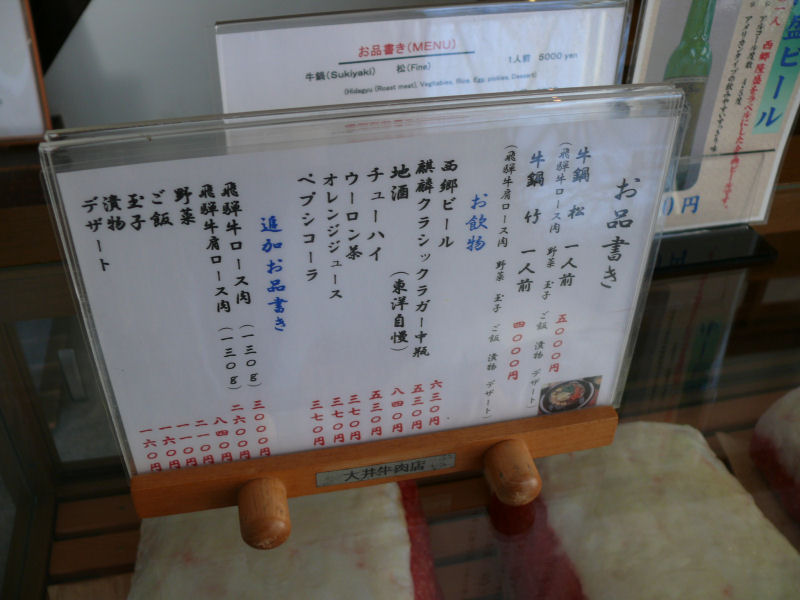 お品書き(MENU)
牛鍋(Sukiyaki) 松(Fine) 1人前 5000yen
(Hidagyu (Roast meat), Vegitables, Rice, Egg, pickles, Dessert)
盛ビール
西郷隆盛をラベルにした
アルコール度数 4.5度
アメリカンタイプの飲みやすいすっきり味
0円
お品書き
牛鍋 松 一人前 五〇〇〇円
(飛騨牛ロース肉 野菜 玉子 ご飯 漬物 デザート)
牛鍋 竹 一人前 四〇〇〇円
(飛騨牛肩ロース肉 野菜 玉子 ご飯 漬物 デザート)
お飲物
西郷ビール 六三〇円
麒麟クラシックラガー中瓶 五三〇円
地酒 (東洋自慢) 八四〇円
チューハイ 五三〇円
ウーロン茶 三七〇円
オレンジジュース 三七〇円
ペプシコーラ 三七〇円
追加お品書き
飛騨牛ロース肉 (一三〇g) 三〇〇〇円
飛騨牛肩ロース肉 (一三〇g) 二六〇〇円
野菜 八四〇円
ご飯 二一〇円
玉子 一一〇円
漬物 一六〇円
デザート 一六〇円
大井牛肉店